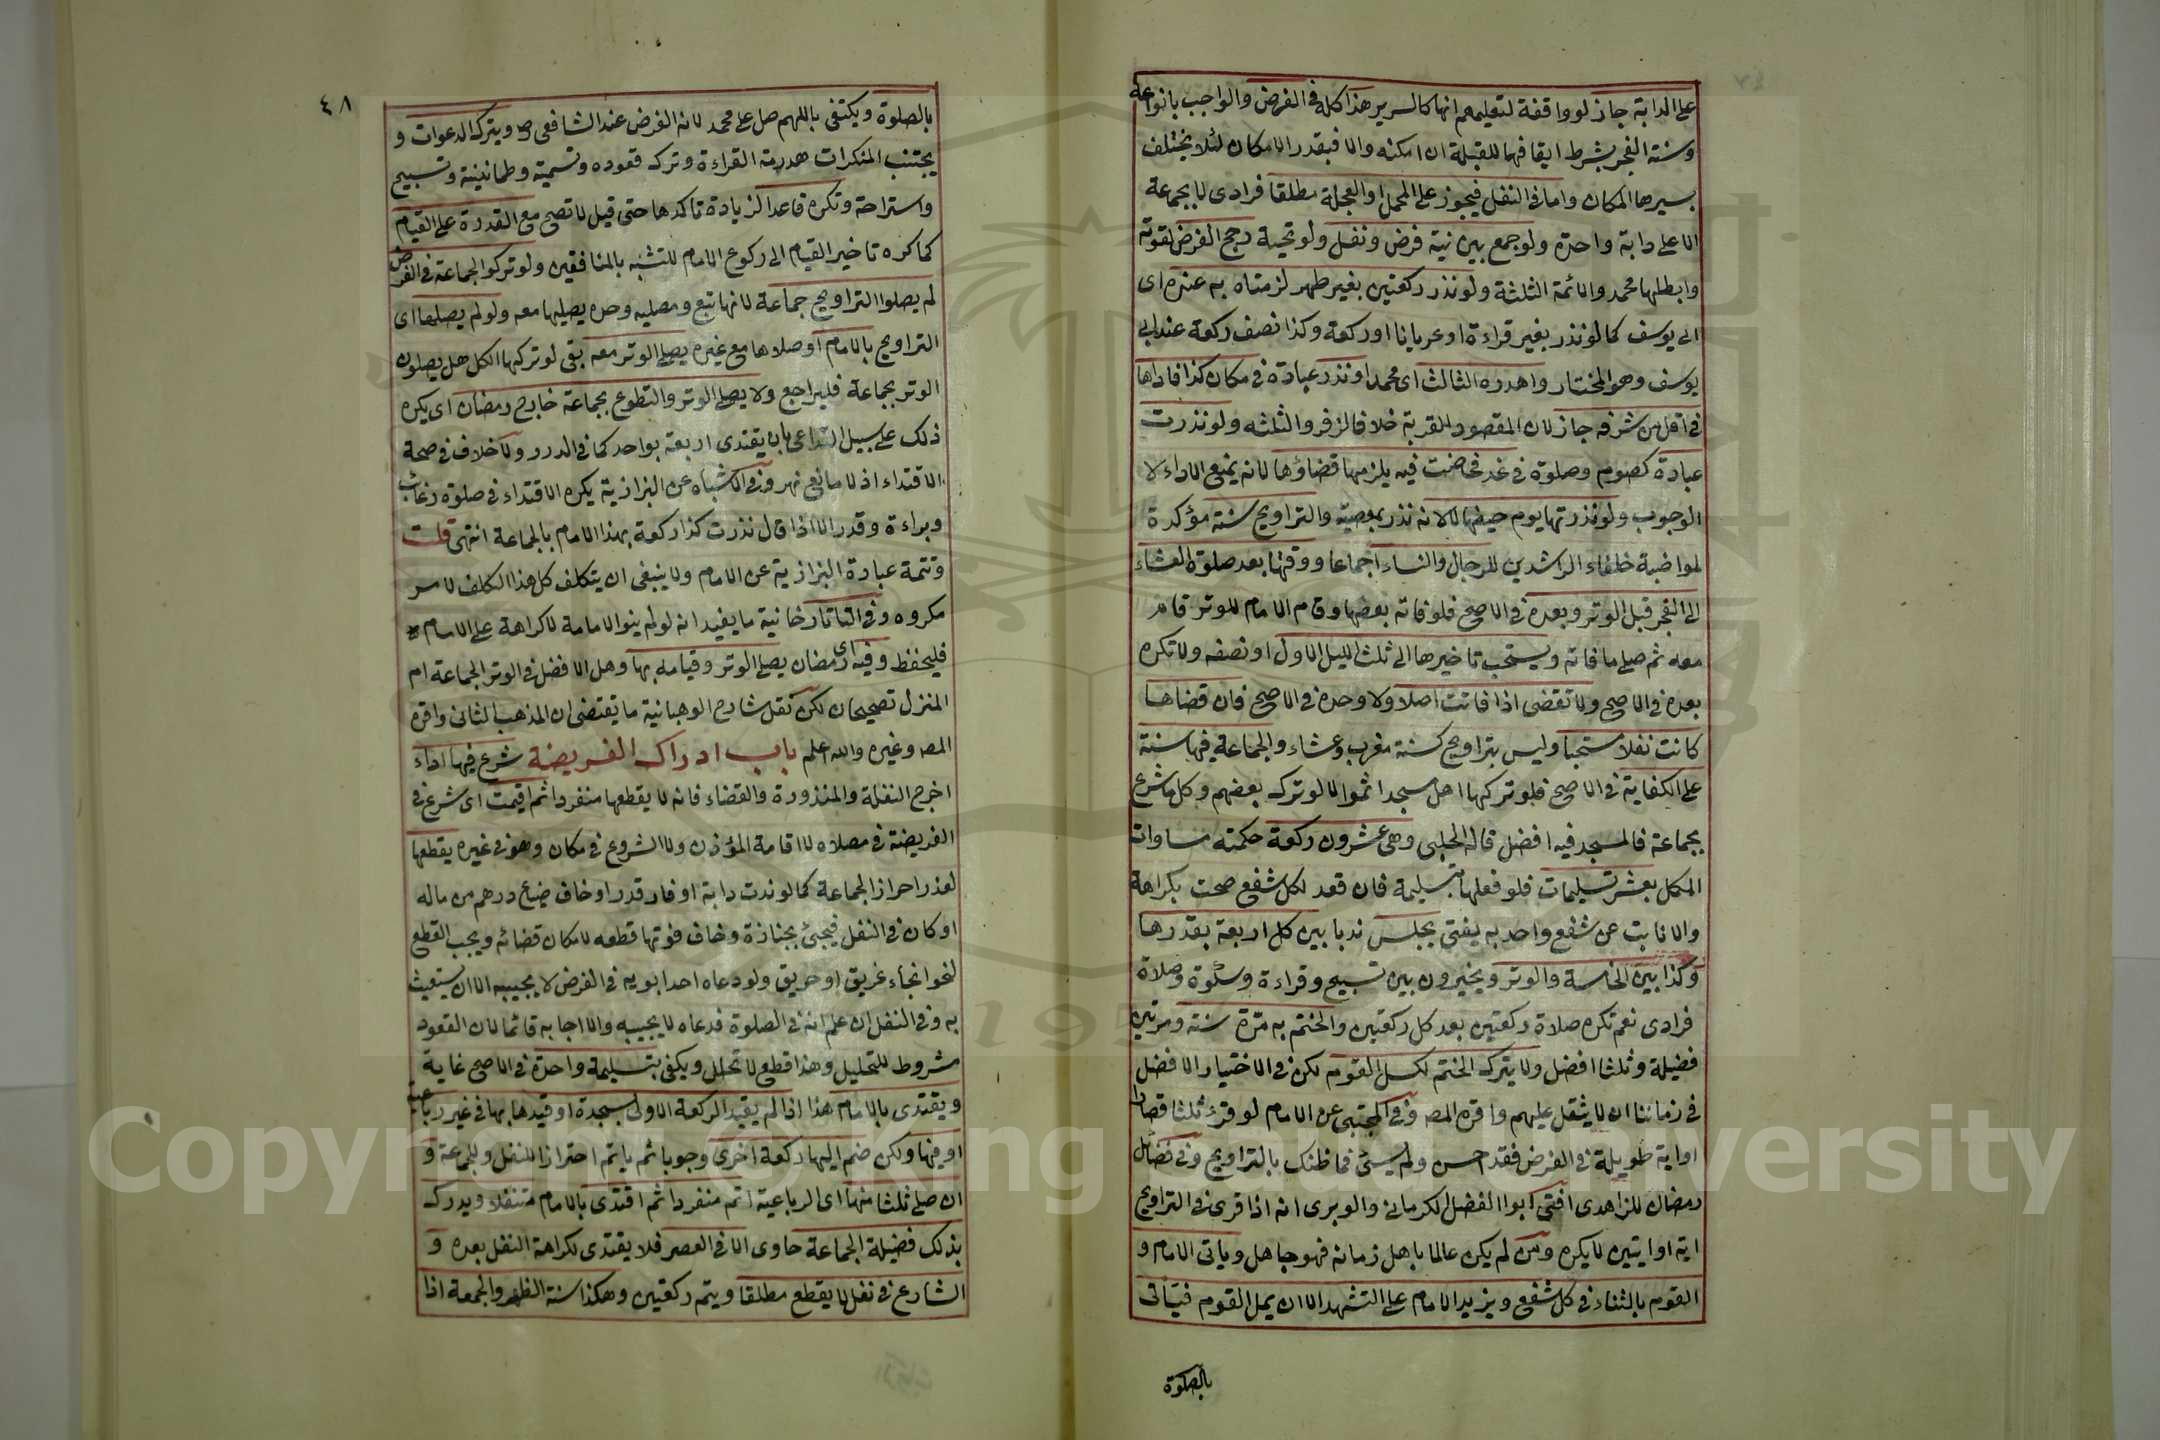 على الدابة جاز لو واقفة لتعليلهم انها كالسرير هذا كله في الفرض والواجب بانواعه
وسنة الفجر بشرط ايقافها للقبلة ان امكنه والا فبقدر الامكان لئلا يختلف
بسيرها المكان واما في النفل فيجوز على المحمل والعجلة مطلقا فرادى لا بجماعة
الا على دابة واحدة ولو جمع بين نية فرض ونفل ولو تحية رجح الفرض لقوته
وابطلها محمد والائمة الثلثة ولو نذر ركعتين بغير طهر لزمتاه به عنده اى
ابى يوسف كما لو نذر بغير قراءة او عريانا او ركعة وكذا نصف ركعة عند ابى
يوسف وهو المختار واهدره الثالث اى محمد او نذر عبادة في مكان كذا فاداها
في اقل من شرفه جاز لان المقصود القربة خلافا لزفر والثلثه ولو نذرت
عبادة كصوم وصلوة في غد فحاضت فيه يلزمها قضاؤها لانه يمنع الاداء لا
الوجوب ولو نذرتها يوم حيضها لا لانه نذر بمعصية والتراويح سنة مؤكدة
لمواظبة خلفاء الراشدين للرجال والنساء اجماعا ووقتها بعد صلوة العشاء
الى الفجر قبل الوتر وبعده في الاصح فلو فاته بعضها وقام الامام للوتر قام
معه ثم صلى ما فاته ويستحب تاخيرها الى ثلث الليل الاول او نصفه ولا تكره
بعده في الاصح ولا تقضى اذا فاتت اصلا ولا وحده في الاصح فان قضاها
كانت نفلا مستحبا وليس بتراويح كسنة مغرب وعشاء والجماعة فيها سنة
على الكفاية في الاصح فلو تركها اهل مسجد اثموا لا لو ترك بعضهم وكل ما شرع
بجماعة فالمسجد فيه افضل قاله الحلبى وهى عشرون ركعة حكمته مساواة
المكمل بعشر تسليمات فلو فعلها بتسليمة فان قعد لكل شفع صحت بكراهة
والا نابت عن شفع واحد به يفتى يجلس ندبا بين كل اربعة بقدرها
وكذا بين الخامسة والوتر ويخيرون بين تسبيح وقراءة وسكوت وصلاة
فرادى نعم تكره صلاة ركعتين بعد كل ركعتين والختم به مرة سنة ومرتين
فضيلة وثلثا افضل ولا يترك الختم لكسل القوم لكن في الاختيار الافضل
في زماننا ان لا يثقل عليهم واقره المصـ وفي المجتبى عن الامام لو قرئ ثلثا قصارا
او اية طويلة في الفرض فقد احسن ولم يسئ فما ظنك بالتراويح وفي فضائل
رمضان للزاهدى افتى ابوا الفضل الكرمانى والوبرى انه اذا قرى في التراويح
اية او ايتين لا يكره ومن لم يكن عالما باهل زمانه فهو جاهل وياتى الامام و
القوم بالثناء في كل شفع ويزيد الامام على التشهد الا ان يمل القوم فيأتى
بالصلوة
٤٨
بالصلوة ويكتفى باللهم صل على محمد لانه الفرض عند الشافعى ويترك الدعوات و
يجتنب المنكرات هدرمة القراءة وترك قعوده وتسمية وطمانينة وتسبيح
واستراحة وتكره قاعدا لزيادة تاكدها حتى قيل لا تصح مع القدرة على القيام
كما كره تاخير القيام الى ركوع الامام للتشبه بالمنافقين ولو تركوا الجماعة في الفرض
لم يصلوا التراويح جماعة لانها تبع ومصليه وحده يصليها معه ولو لم يصلها اى
التراويح بالامام او صلاها مع غيره يصلى الوتر معه بقى لو تركها الكل هل يصلون
الوتر بجماعة فليراجع ولا يصلى الوتر والتطوع بجماعة خارج رمضان اى يكره
ذلك على سبيل التداعى بان يقتدى اربعة بواحد كما في الدرر ولا خلاف في صحة
الاقتداء اذ لا مانع نهر وفي الاشباه عن البزازية يكره الاقتداء في صلوة رغائب
وبراءة وقدر الا اذا قال نذرت كذا ركعة بهذا الامام بالجماعة انتهى قلت
وتتمة عبارة البزازية عن الامام ولا ينبغى ان يتكلف كل هذا التكلف لامر
مكروه وفي التاتارخانية ما يفيد انه لو لم ينو الامامة لا كراهة على الامام
فليحفظ وفيه اى رمضان يصلى الوتر وقيامه بها وهل الافضل في الوتر الجماعة ام
المنزل تصحيحان لكن نقل شارح الوهبانية ما يقتضى ان المذهب الثانى واقره
المصـ وغيره والله اعلم باب ادراك الفريضة شرع فيها اداء
اخرج النفلة والمنذورة والقضاء فانه لا يقطعها منفردا ثم اقيمت اى شرع في
الفريضة في مصلاه لا اقامة المؤذن ولا الشروع في مكان وهو في غيره يقطعها
لعذر احراز الجماعة كما لو ندت دابة او فار قدر او خاف ضياع درهم من ماله
او كان في النفل فيجئ بجنازة وخاف فوتها قطعه لامكان قضائه ويجب القطع
لنحو انجاء غريق او حريق ولو دعاه احد ابويه في الفرض لا يجيبه الا ان يستغيث
به وفي النفل ان علم انه في الصلوة فدعاه لا يجيبه والا اجابه قائما لان القعود
مشروط للتحليل وهذا قطع لا تحلل ويكفى بتسليمة واحدة في الاصح غاية
ويقتدى بالامام هذا اذا لم يقيد الركعة الاولى بسجدة او قيدها بها في غير رباعية
او فيها ولكن ضم اليها ركعة اخرى وجوبا ثم ياتم احترازا للنفل والجماعة و
ان صلى ثلثا منها اى الرباعية اتم منفردا ثم اقتدى بالامام متنفلا ويدرك
بذلك فضيلة الجماعة حاوى الا في العصر فلا يقتدى لكراهة النفل بعده و
الشارع في نفل لا يقطع مطلقا ويتم ركعتين وهكذا سنة الظهر والجمعة اذا
1957
Copyright © King Saud University